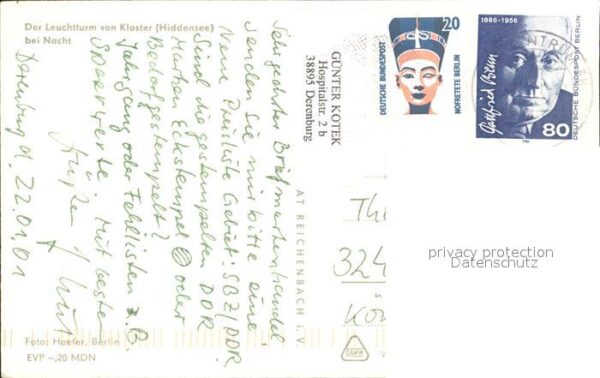 Der Leuchtturm von Kloster (Hiddensee)
bei Nacht
Derenburg d. 22.01.01
Sehr geehrter Briefmarkenhandel
senden Sie mir bitte eine
Neue Preisliste Gebiet: SBZ/DDR
Sind die gestempelten DDR
Marken Eckstempel oder
Bedarfsgestempelt?
Jahrgang oder Fehllisten z.B.
Mit besten
Grüßen
GÜNTER KOTEK
Hospitalstr. 2 b
38895 Derenburg
20
DEUTSCHE BUNDESPOST
NOFRETETE BERLIN
1886-1956
Gottfried Benn
80
DEUTSCHE BUNDESPOST BERLIN
ZENTRUM
AT REICHENBACH I. V.
324
privacy protection
Datenschutz
Foto: Hoefer, Berlin
EVP -,20 MDN